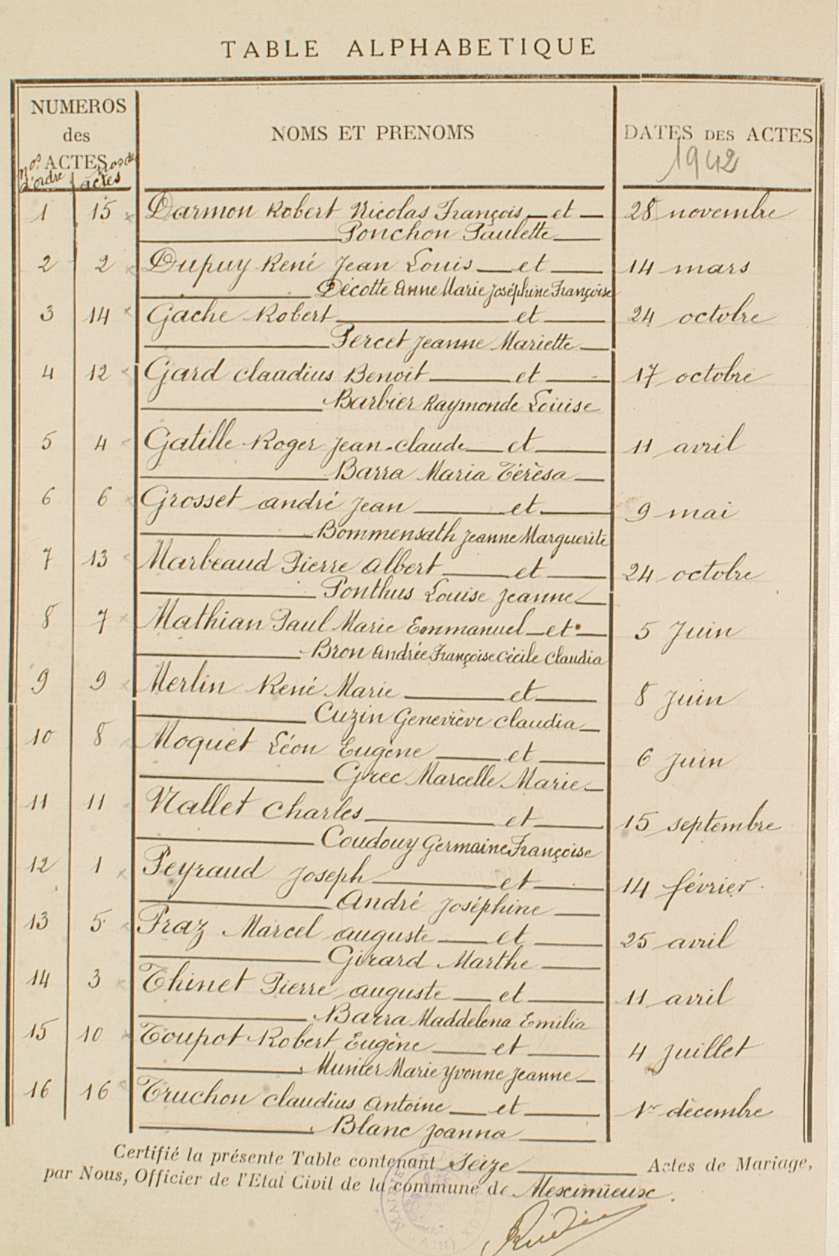 TABLE ALPHABETIQUE
NUMEROS
des
ACTES
NOMS ET PRENOMS
DATES DES ACTES
1942
Nos d'ordre Nos des actes
1 15 Darmon Robert Nicolas François et 28 novembre
Ponchon Paulette
2 2 Dupuy René Jean Louis et 14 mars
Décotte Anne Marie Joséphine Françoise
3 14 Gache Robert et 24 octobre
Percet Jeanne Mariette
4 12 Gard Claudius Benoit et 17 octobre
Barbier Raymonde Louise
5 4 Gatille Roger Jean-Claude et 11 avril
Barra Maria Térèsa
6 6 Grosset André Jean et 9 mai
Bommensath Jeanne Marguerite
7 13 Marbeaud Pierre Albert et 24 octobre
Ponthus Louise Jeanne
8 7 Mathian Paul Marie Emmanuel et 5 Juin
Bron Andrée Françoise Cécile Claudia
9 9 Merlin René Marie et 8 Juin
Cuzin Geneviève Claudia
10 8 Moquet Léon Eugène et 6 Juin
Grec Marcelle Marie
11 11 Nallet Charles et 15 septembre
Coudouy Germaine Françoise
12 1 Peyraud Joseph et 14 février
André Joséphine
13 5 Praz Marcel Auguste et 25 avril
Girard Marthe
14 3 Thinet Pierre Auguste et 11 avril
Barra Maddelena Emilia
15 10 Toupot Robert Eugène et 4 Juillet
Munier Marie Yvonne Jeanne
16 16 Truchon Claudius Antoine et 1er décembre
Blanc Joanna
Certifié la présente Table contenant Seize Actes de Mariage,
par Nous, Officier de l'Etat Civil de la commune de Meximieux.